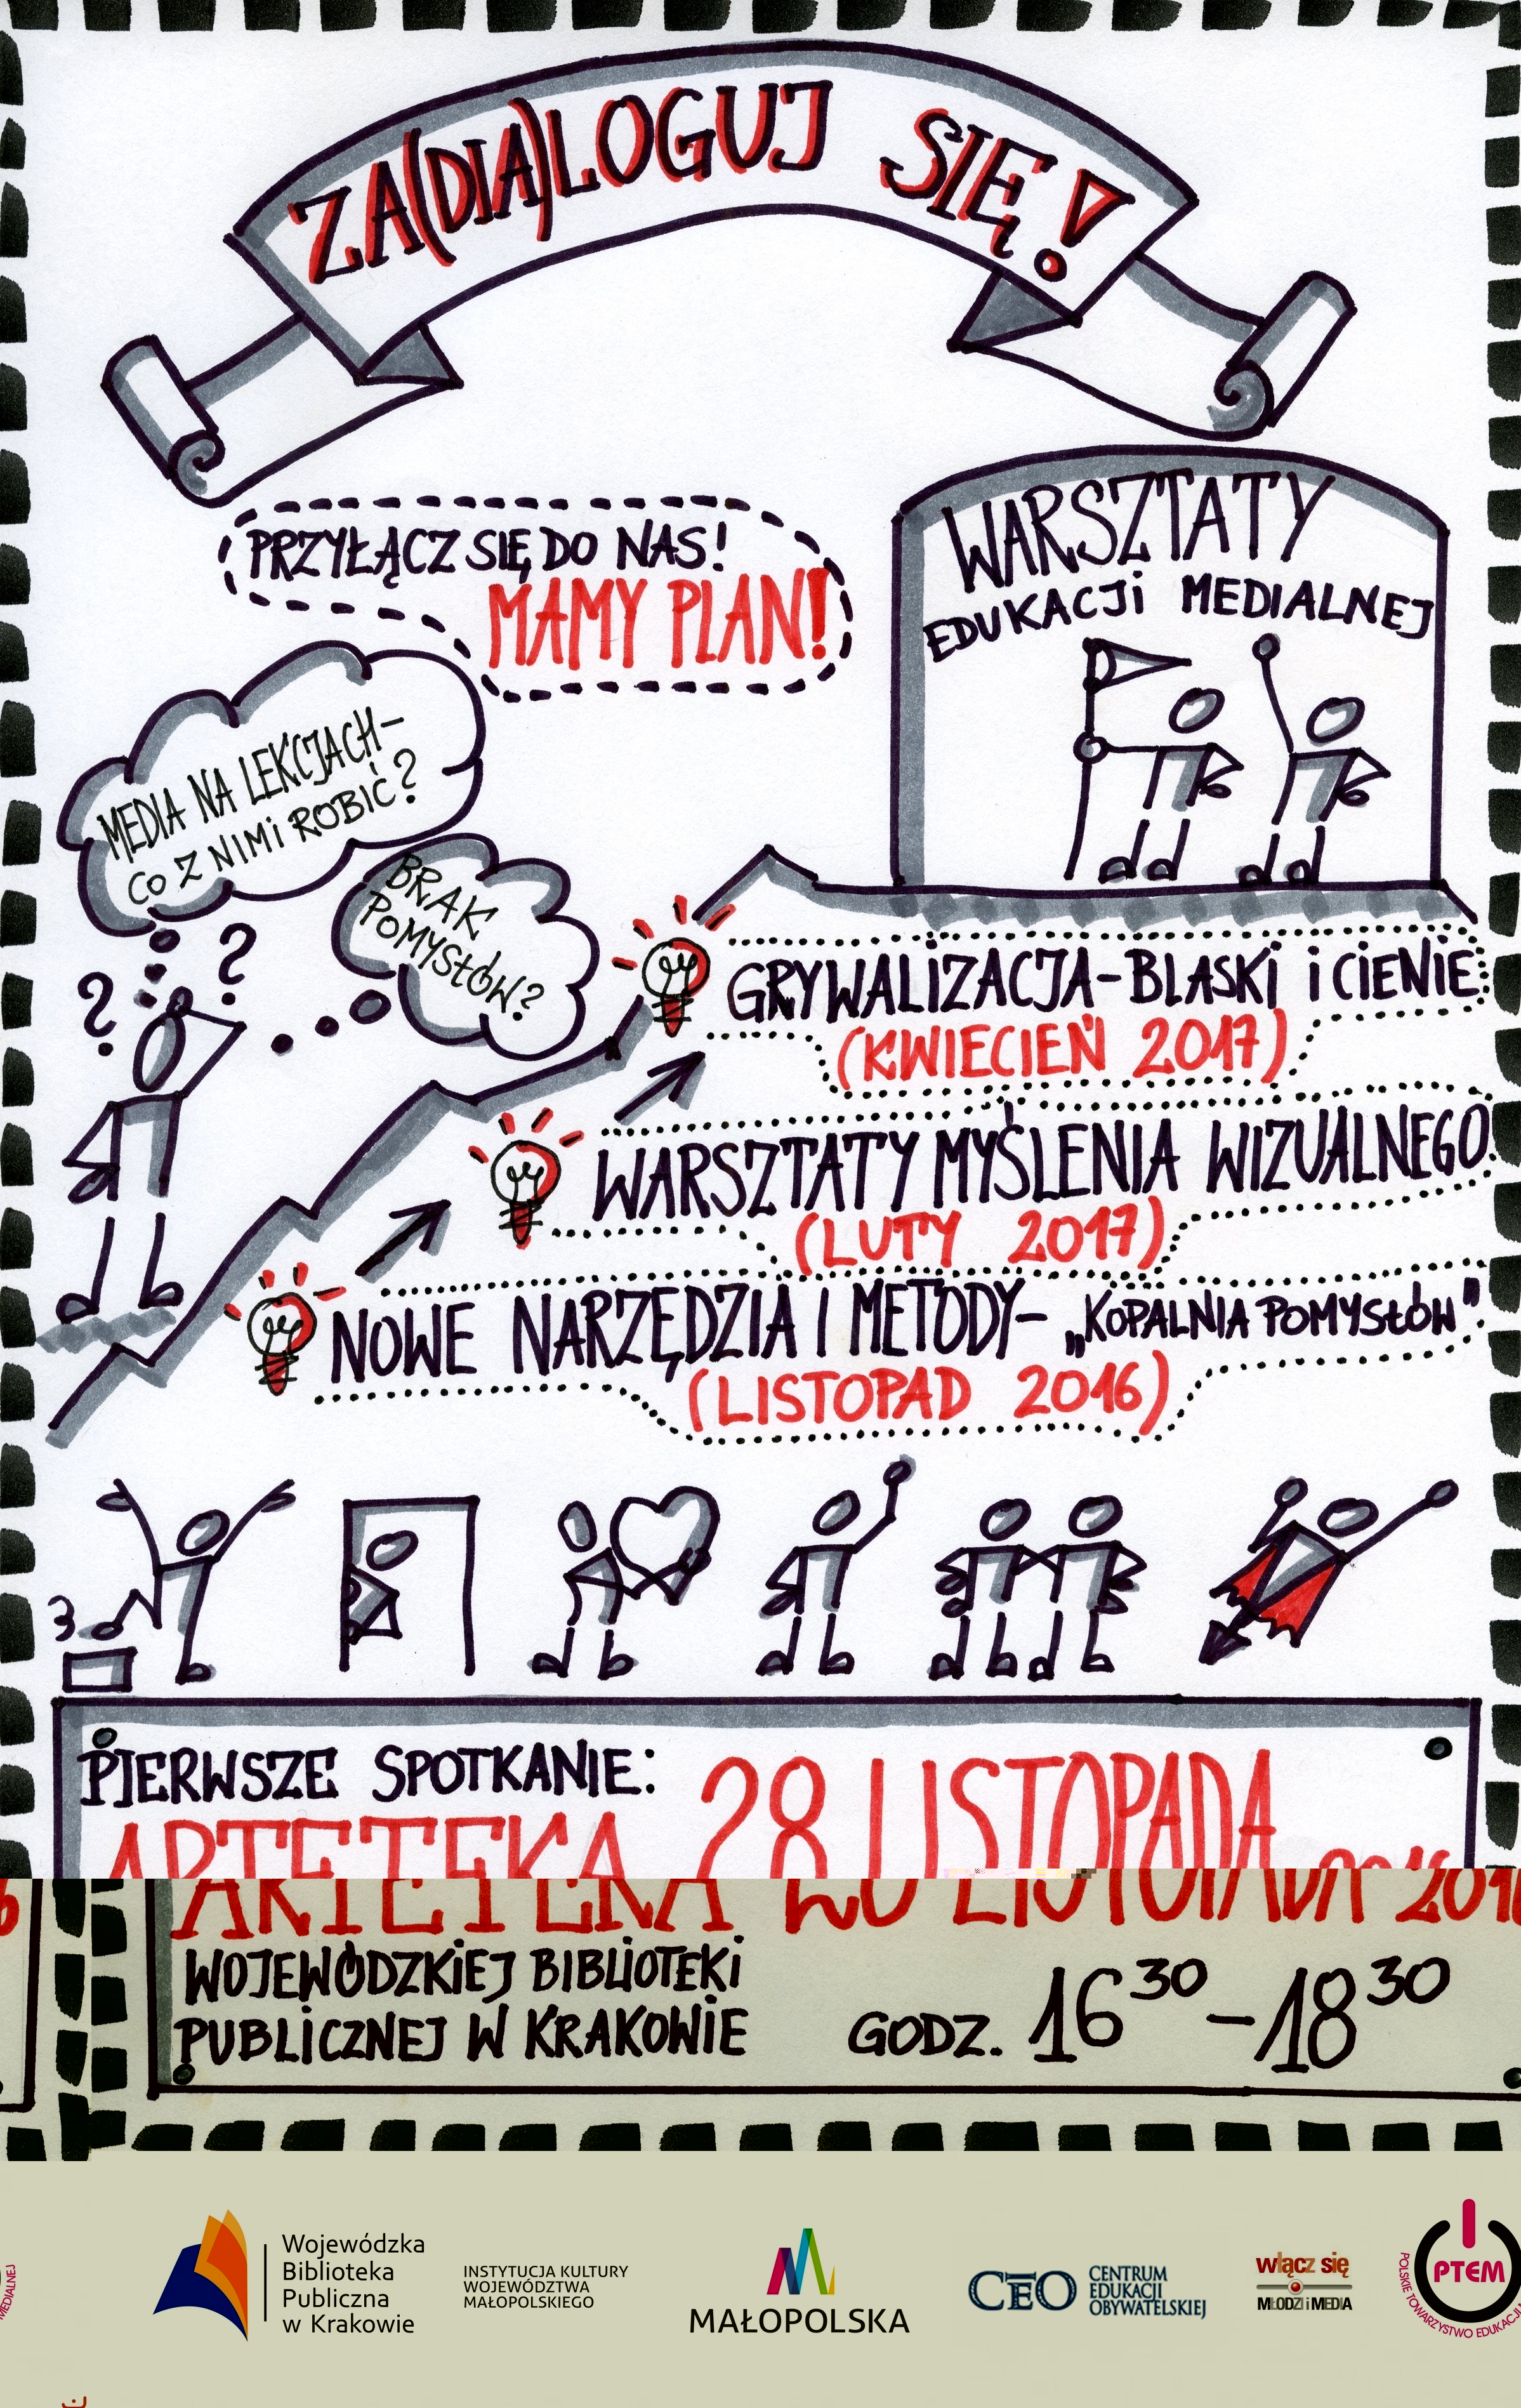 ZA(DIA)LOGUJ SIĘ!
PRZYŁĄCZ SIĘ DO NAS!
MAMY PLAN!
WARSZTATY
EDUKACJI MEDIALNEJ
MEDIA NA LEKCJACH-
CO Z NIMI ROBIĆ?
BRAK
POMYSŁÓW?
? ?
GRYWALIZACJA-BLASKI I CIENIE
(KWIECIEŃ 2017)
WARSZTATY MYŚLENIA WIZUALNEGO
(LUTY 2017)
NOWE NARZĘDZIA I METODY- „KOPALNIA POMYSŁÓW"
(LISTOPAD 2016)
PIERWSZE SPOTKANIE:
ARTETEKA 28 LISTOPADA 2016
WOJEWÓDZKIEJ BIBLIOTEKI
PUBLICZNEJ W KRAKOWIE
GODZ. 16 30 - 18 30
Wojewódzka
Biblioteka
Publiczna
w Krakowie
INSTYTUCJA KULTURY
WOJEWÓDZTWA
MAŁOPOLSKIEGO
MAŁOPOLSKA
CEO CENTRUM
EDUKACJI
OBYWATELSKIEJ
włącz się
MŁODZI i MEDIA
PTEM
POLSKIE TOWARZYSTWO
MEDIALNEJ